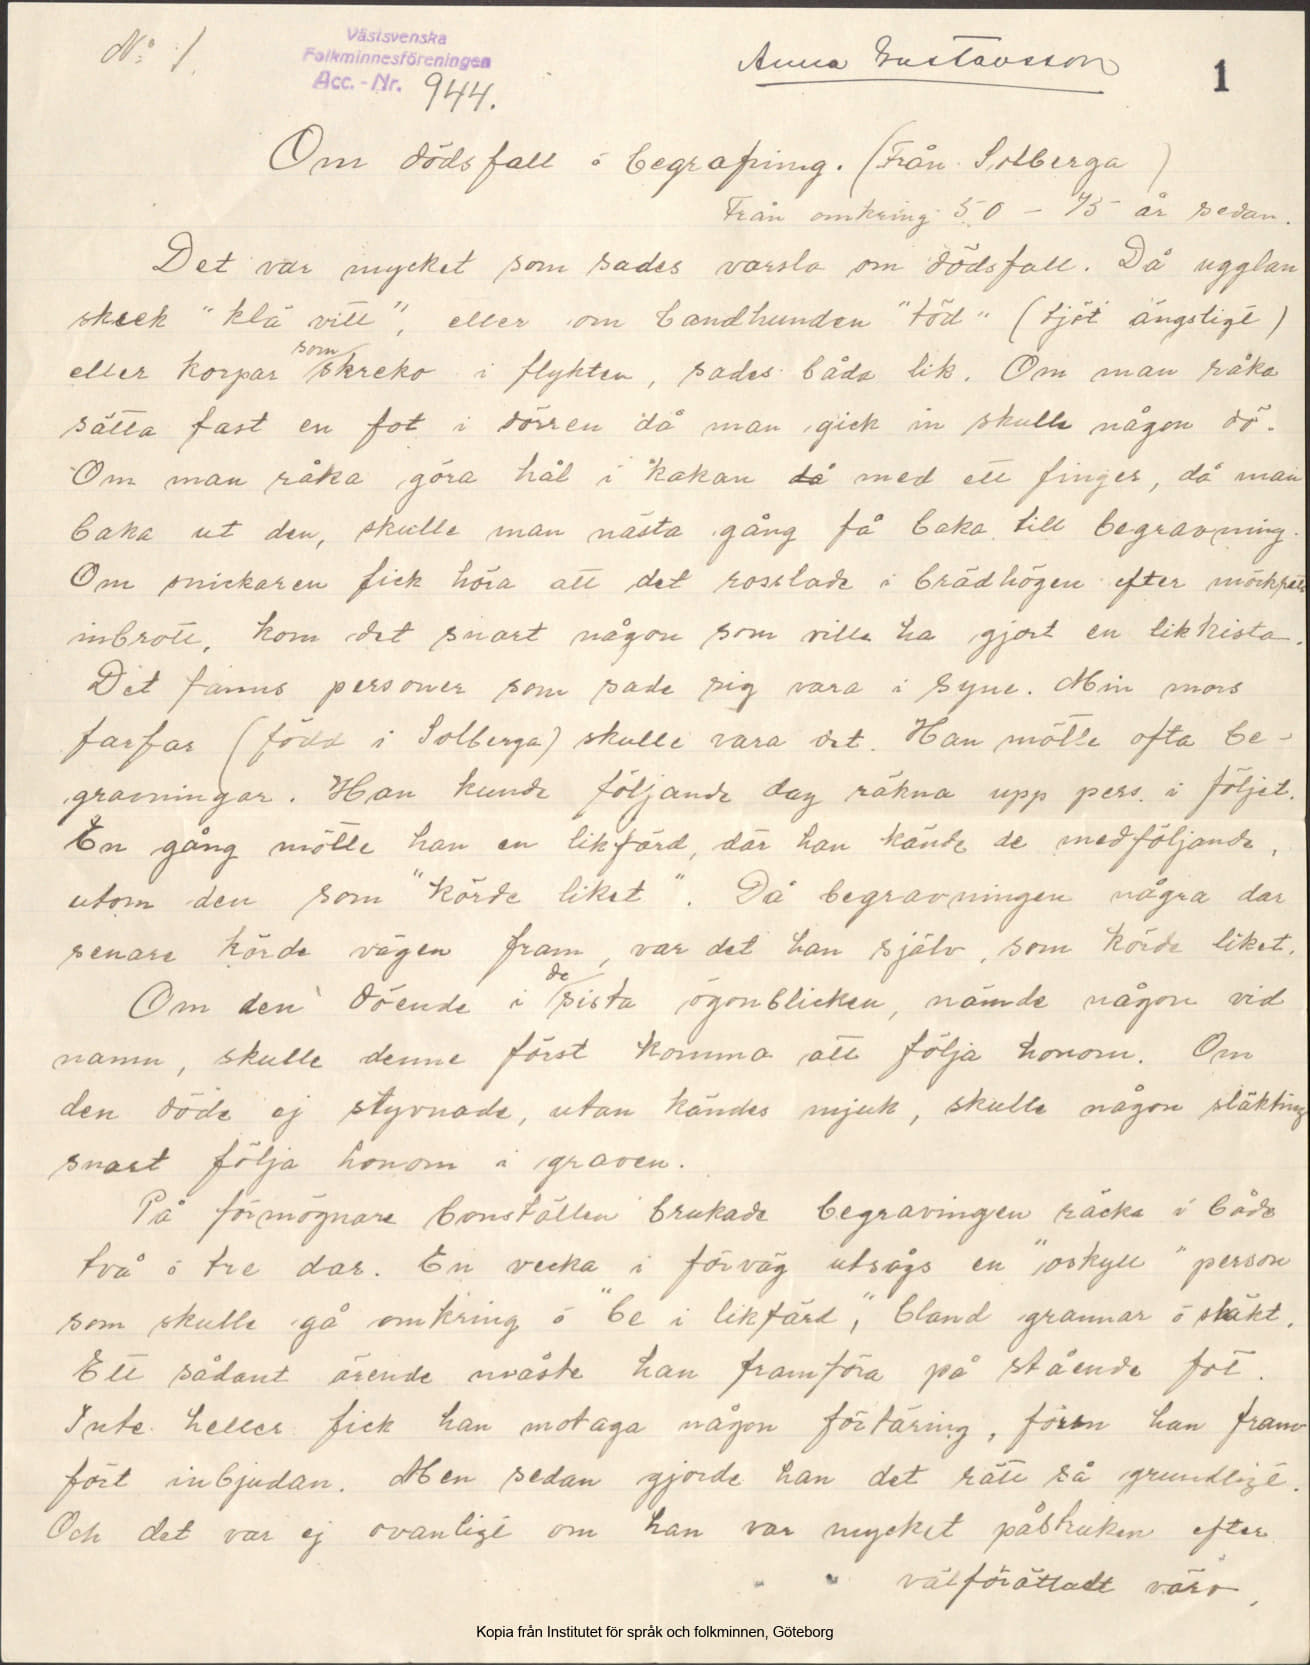 N:o 1.
Västsvenska
Folkminnesföreningen
Acc. - Nr. 944.
Anna Gustavsson
1
Om dödsfall o begrafning. (Från Solberga)
Från omkring 50 - 75 år sedan.
Det var mycket som sades varsla om dödsfall. Då ugglan
skrek "klä vitt", eller om bandhunden "töd" (tjöt ängsligt)
eller korpar som skreko i flykten, sades båda lik. Om man råka
sätta fast en fot i dörren då man gick in skulle någon dö.
Om man råka göra hål i kakan då med ett finger, då man
baka ut den, skulle man nästa gång få baka till begravning.
Om snickaren fick höra att det rosslade i brädhögen efter mörkrets
inbrott, kom det snart någon som ville ha gjort en likkista.
Det fanns personer som sade sig vara i syne. Min mors
farfar (född i Solberga) skulle vara det. Han mötte ofta be-
gravningar. Han kunde följande dag räkna upp pers. i följet.
En gång mötte han en likfärd, där han kände de medföljande,
utom den som "körde liket". Då begravningen några dar
senare körde vägen fram, var det han själv, som körde liket.
Om den döende i de sista ögonblicken, nämde någon vid
namn, skulle denne först komma att följa honom. Om
den döde ej styvnade, utan kändes mjuk, skulle någon släkting
snart följa honom i graven.
På förmögnare bonställen brukade begravingen räcka i både
två o tre dar. En vecka i förväg utsågs en "oskyll" person
som skulle gå omkring o "be i likfärd", bland grannar o släkt.
Ett sådant ärende måste han framföra på stående fot.
Inte heller fick han motaga någon förtäring, förrn han fram
fört inbjudan. Men sedan gjorde han det rätt så grundligt.
Och det var ej ovanligt om han var mycket påstruken efter
välförättadt värv.
Kopia från Institutet för språk och folkminnen, Göteborg